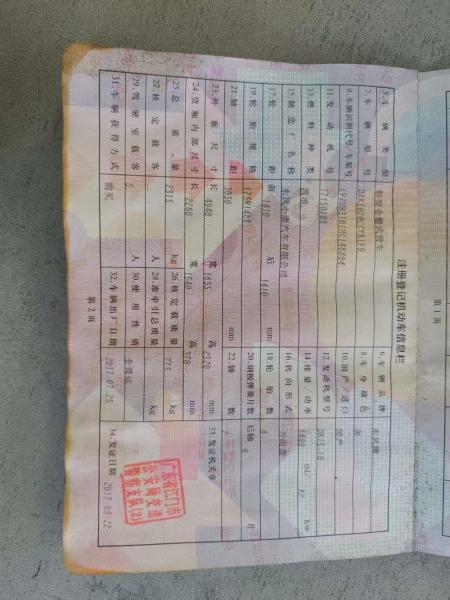 注册登记机动车信息栏
5.车辆类型 轻型仓栅式货车 6.车辆品牌 东风牌
7.车辆型号 8.车身颜色 灰
9.车辆识别代号/车架号 10.国产/进口 国产
11.发动机号 17150103 12.发动机型号
13.燃料种类 汽油 14.排量/功率 ml/ kw
15.制造厂名称 东风小康汽车有限公司 16.转向形式 方向盘
17.轮距 前 1410 后 1410 mm 18.轮胎数 4
19.轮胎规格 20.钢板弹簧片数 后轴 6 片
21.轴距 3050 mm 22.轴数 2
23.外廓尺寸 长 4940 宽 1655 高 mm 33.发证机关章
24.货厢内部尺寸 长 2260 宽 1540 高 370 mm
25.总质量 2315 kg 26.核定载质量 775 kg
27.核定载客 人 28.准牵引总质量 kg
29.驾驶室载客 5 人 30.使用性质 非营运
31.车辆获得方式 购买 32.车辆出厂日期 2017-07-25 34.发证日期 2017-08-22
广东省江门市
公安局交通
警察支队(2)
第2页
第1页